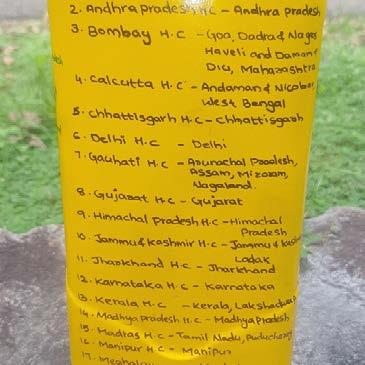 2. Andhra Pradesh H.C - Andhra Pradesh
3. Bombay H.C - Goa, Dadra & Nagar
Haveli and Daman &
Diu, Maharashtra
4. Calcutta H.C - Andaman & Nicobar,
West Bengal
5. Chhattisgarh H.C - Chhattisgarh
6. Delhi H.C - Delhi
7. Gauhati H.C - Arunachal Pradesh,
Assam, Mizoram,
Nagaland.
8. Gujarat H.C - Gujarat
9. Himachal Pradesh H.C - Himachal
Pradesh
10. Jammu & Kashmir H.C - Jammu &
Ladak
11. Jharkhand H.C - Jharkhand
12. Karnataka H.C - Karnataka
13. Kerala H.C - Kerala, Lakshadweep
14. Madhya Pradesh H.C - Madhya Pradesh
15. Madras H.C - Tamil Nadu, Puducherry
16. Manipur H.C - Manipur
17. Meghalaya